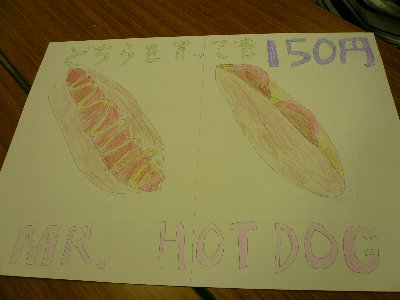 どちらを買っても150円
MR. HOT DOG